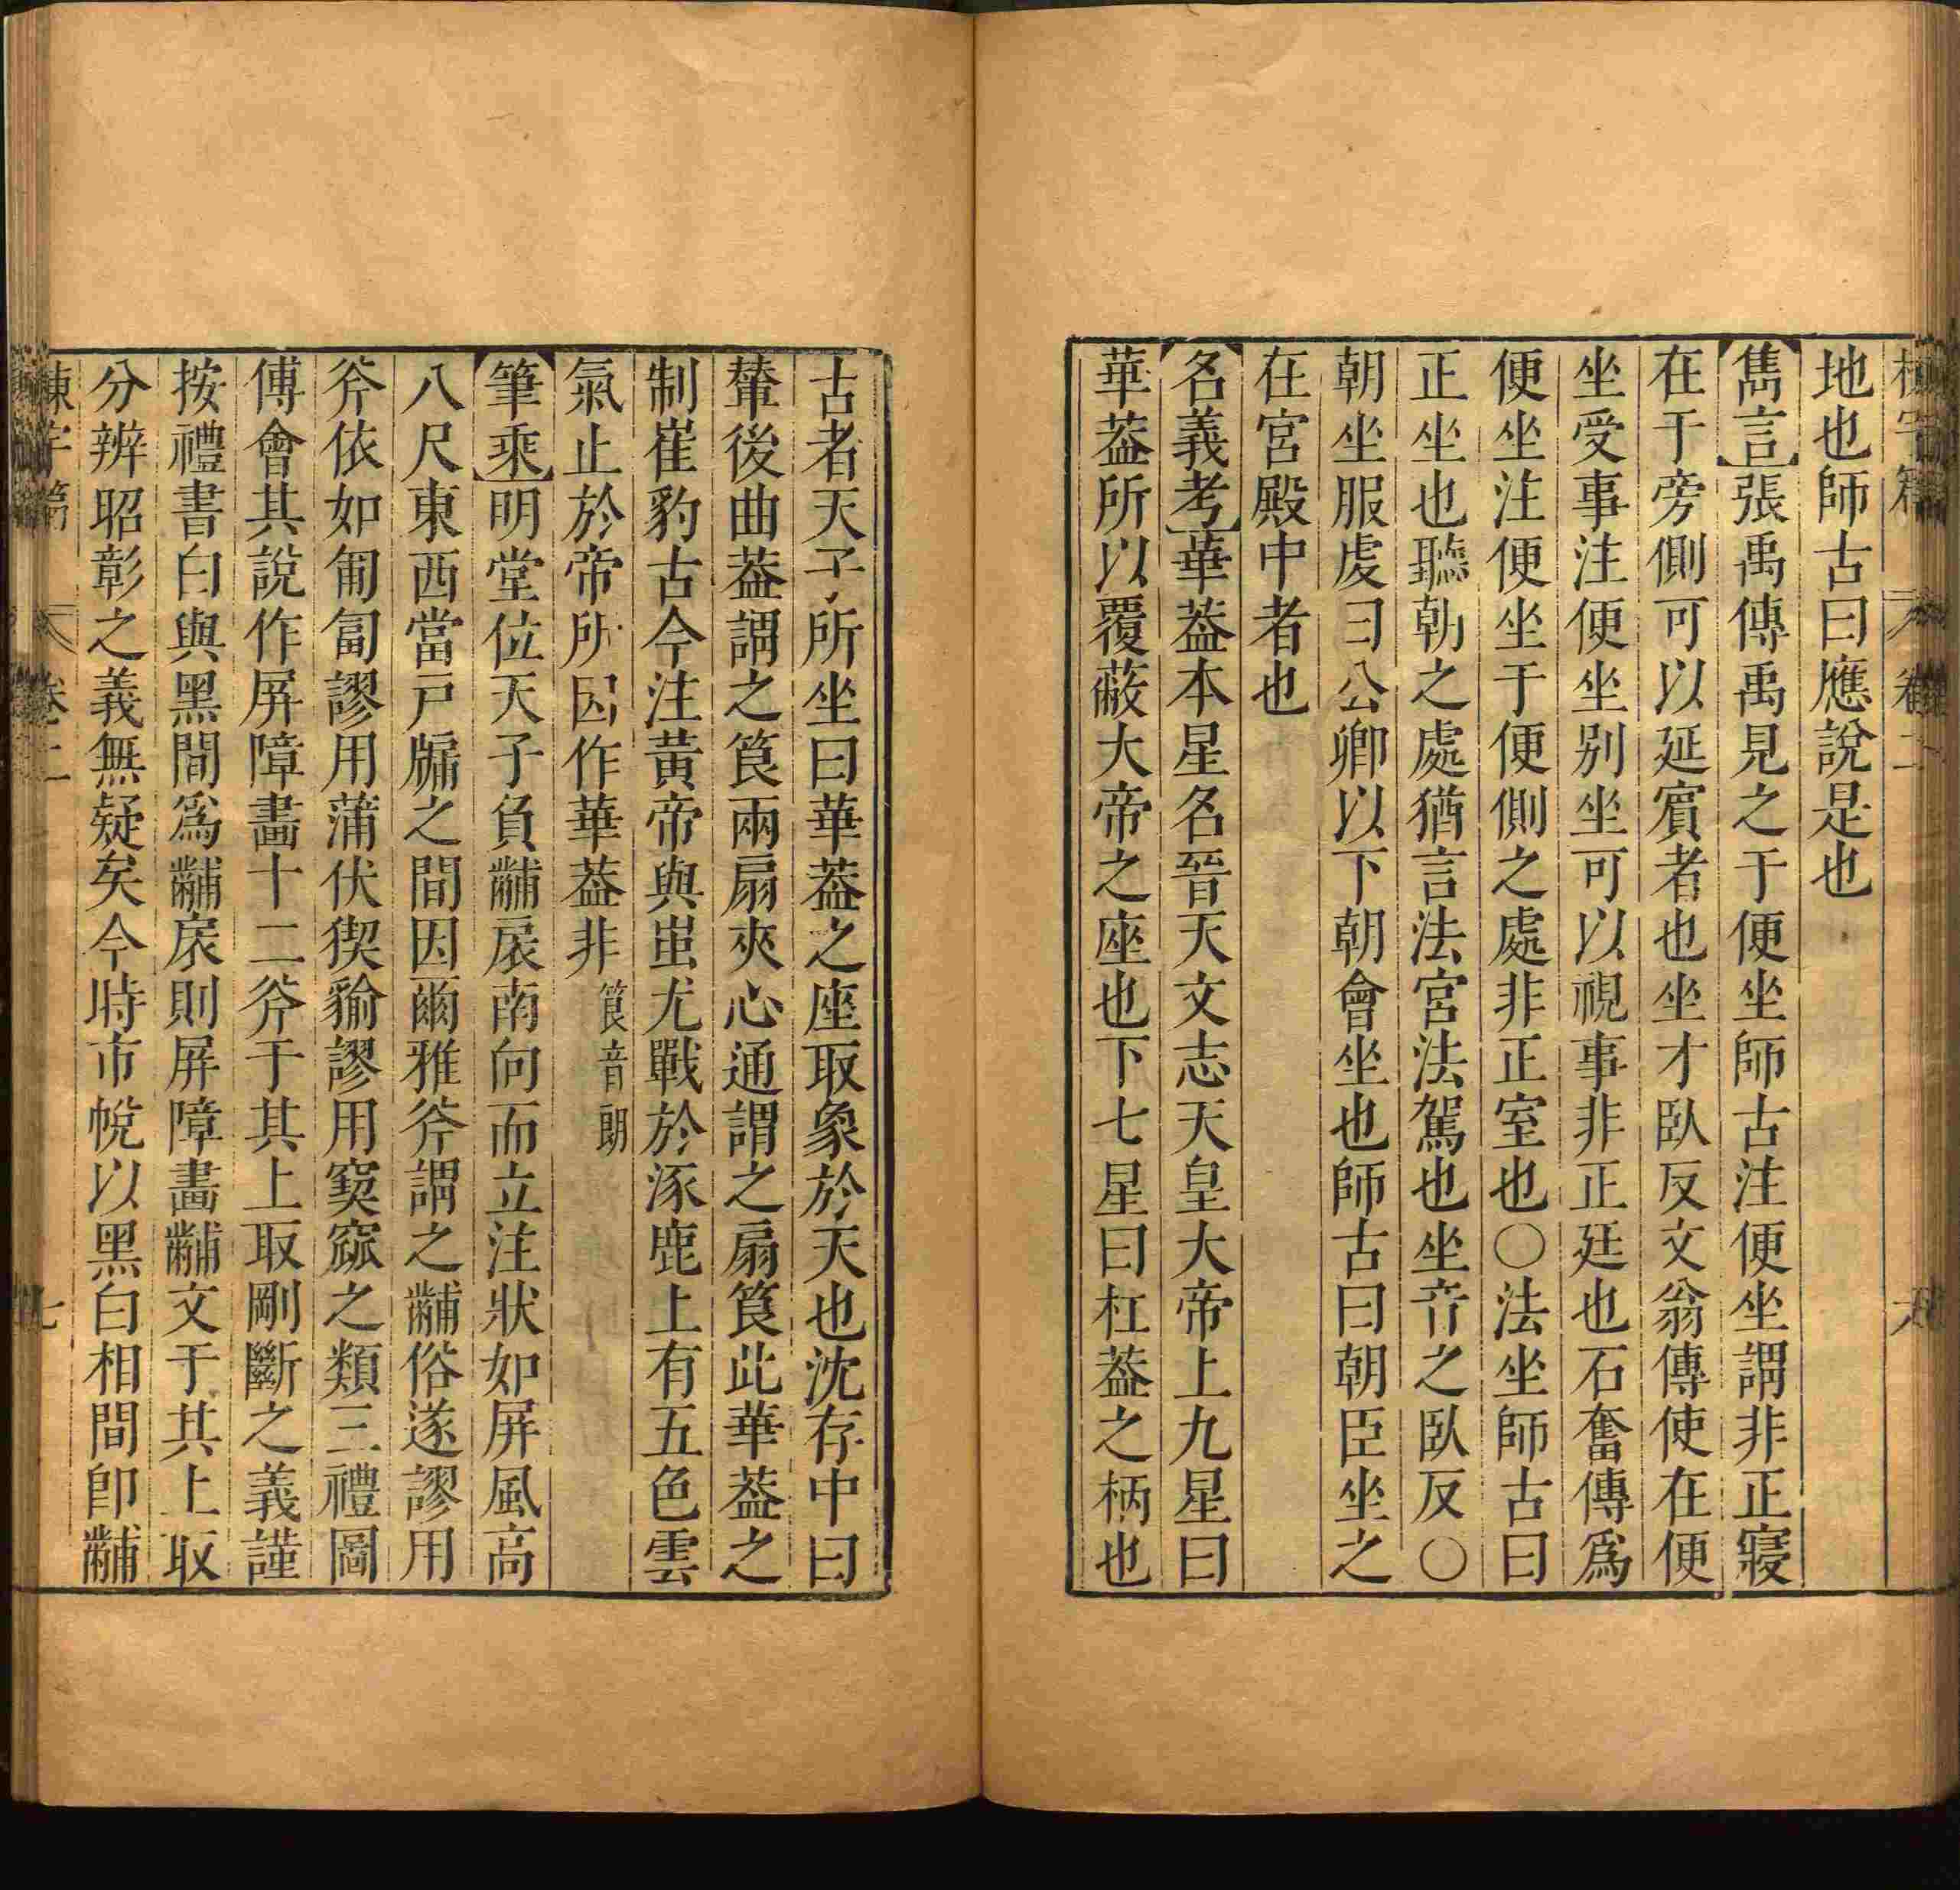 地也師古曰應說是也
【雋言】張禹傳禹見之于便坐師古注便坐謂非正寢
在于旁側可以延賓者也坐才臥反文翁傳使在便
坐受事注便坐別坐可以視事非正廷也石奮傳爲
便坐注便坐于便側之處非正室也○法坐師古曰
正坐也聽朝之處猶言法宮法駕也坐音之臥反○
朝坐服虔曰公卿以下朝會坐也師古曰朝臣坐之
在宮殿中者也
【名義考】華葢本星名晉天文志天皇大帝上九星曰
華葢所以覆蔽大帝之座也下七星曰杠葢之柄也
古者天子所坐曰華葢之座取象於天也沈存中曰
輦後曲葢謂之筤兩扇夾心通謂之扇筤此華葢之
制崔豹古今注黃帝與蚩尤戰於涿鹿上有五色雲
氣止於帝所因作華葢非 筤音朗
【筆乘】明堂位天子負黼扆南向而立注狀如屏風高
八尺東西當戸牖之間因爾雅斧謂之黼俗遂謬用
斧依如匍匐謬用蒲伏猰貐謬用窫窳之類三禮圖
傅會其說作屏障畫十二斧于其上取剛斷之義謹
按禮書白與黑間爲黼扆則屏障畫黼文于其上取
分辨昭彰之義無疑矣今時市帨以黑白相間卽黼
卷二
七